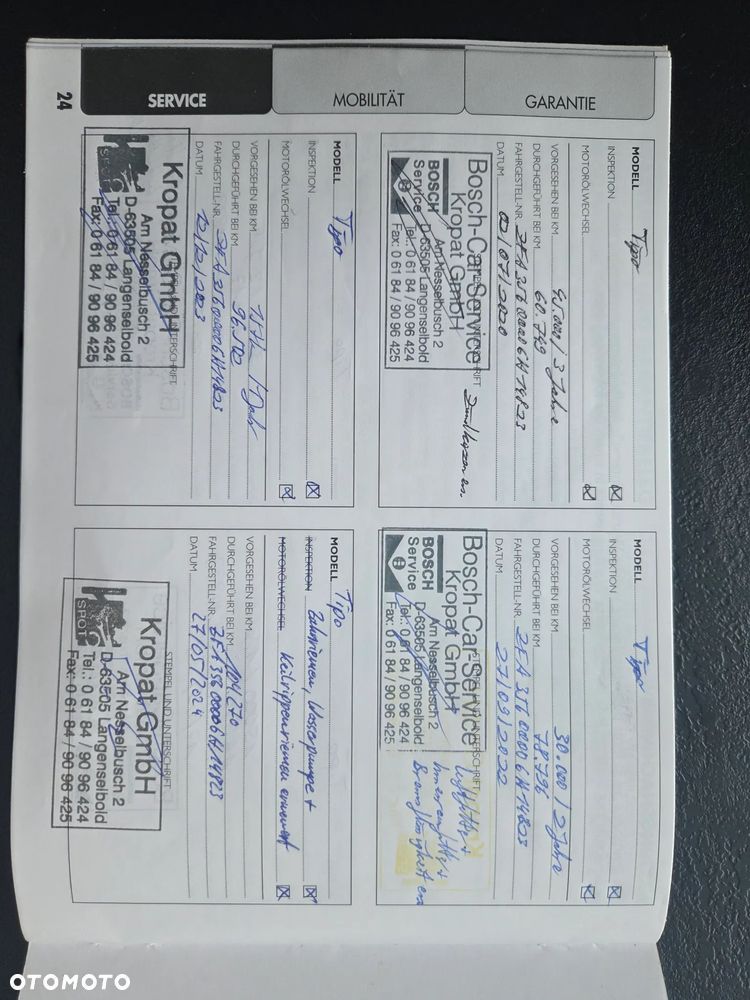 24
SERVICE
MOBILITÄT
GARANTIE
MODELL Tipo
INSPEKTION
MOTORÖLWECHSEL
VORGESEHEN BEI KM 90.000 / 3 Jahre
DURCHGEFÜHRT BEI KM 60.749
FAHRGESTELL-NR. ZFA35600006H14823
DATUM 02/07/2020
Bosch-Car-Service
Kropat GmbH
BOSCH
Service
Am Nesselbusch 2
D-63505 Langenselbold
Tel.: 0 61 84 / 90 96 424
Fax: 0 61 84 / 90 96 425
MODELL Tipo
INSPEKTION
MOTORÖLWECHSEL
VORGESEHEN BEI KM 30.000 / 2 Jahre
DURCHGEFÜHRT BEI KM 78.796
FAHRGESTELL-NR. ZFA35600006H14823
DATUM 27/09/2022
STEMPEL UND UNTERSCHRIFT
Bosch-Car-Service
Kropat GmbH
BOSCH
Service
Am Nesselbusch 2
D-63505 Langenselbold
Tel.: 0 61 84 / 90 96 424
Fax: 0 61 84 / 90 96 425
Luftfilter +
Innenraumfilter +
Bremsflüssigkeit ern
MODELL Tipo
INSPEKTION
MOTORÖLWECHSEL
VORGESEHEN BEI KM 1 Jahr
DURCHGEFÜHRT BEI KM 96.500
FAHRGESTELL-NR. ZFA35600006H14823
DATUM
UNTERSCHRIFT
Kropat GmbH
Am Nesselbusch 2
D-63505 Langenselbold
Tel.: 0 61 84 / 90 96 424
Fax: 0 61 84 / 90 96 425
MODELL Tipo
INSPEKTION Zahnriemen, Wasserpumpe +
MOTORÖLWECHSEL Keilrippenriemen erneuert
VORGESEHEN BEI KM
DURCHGEFÜHRT BEI KM 104.270
FAHRGESTELL-NR. ZFA35600006H14823
DATUM 27/05/2024
STEMPEL UND UNTERSCHRIFT
Kropat GmbH
Am Nesselbusch 2
D-63505 Langenselbold
Tel.: 0 61 84 / 90 96 424
Fax: 0 61 84 / 90 96 425
OTOMOTO